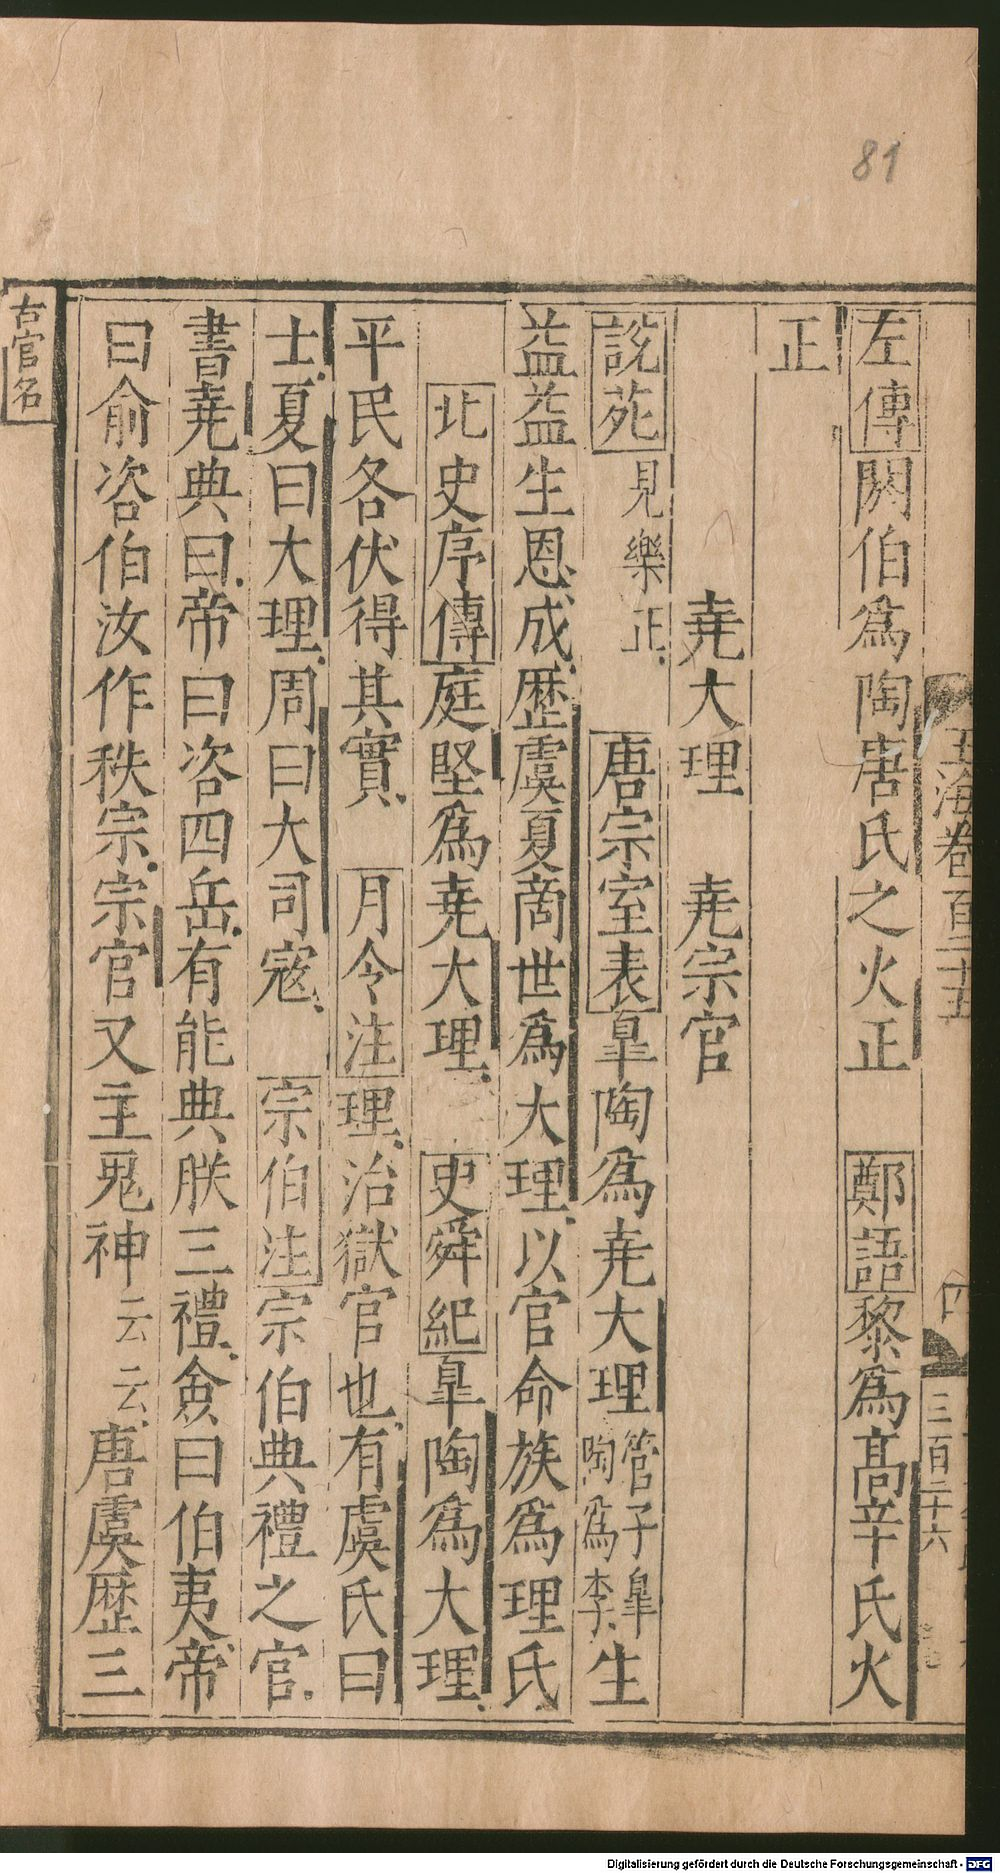 81
玉海卷百二十五
四
三百二十六
左傳閼伯爲陶唐氏之火正　鄭語黎爲髙辛氏火
正
尭大理　尭宗官
說苑見樂正　唐宗室表臯陶爲尭大理管子臯陶爲李生
益益生恩成歷虞夏商世爲大理以官命族爲理氏
北史序傳庭堅爲尭大理　史舜紀臯陶爲大理
平民各伏得其實　月令注理治獄官也有虞氏曰
士夏曰大理周曰大司寇　宗伯注宗伯典禮之官
書尭典曰帝曰咨四岳有能典朕三禮僉曰伯夷帝
曰俞咨伯汝作秩宗宗官又主鬼神云云唐虞歷三
古官名
Digitalisierung gefördert durch die Deutsche Forschungsgemeinschaft - DFG